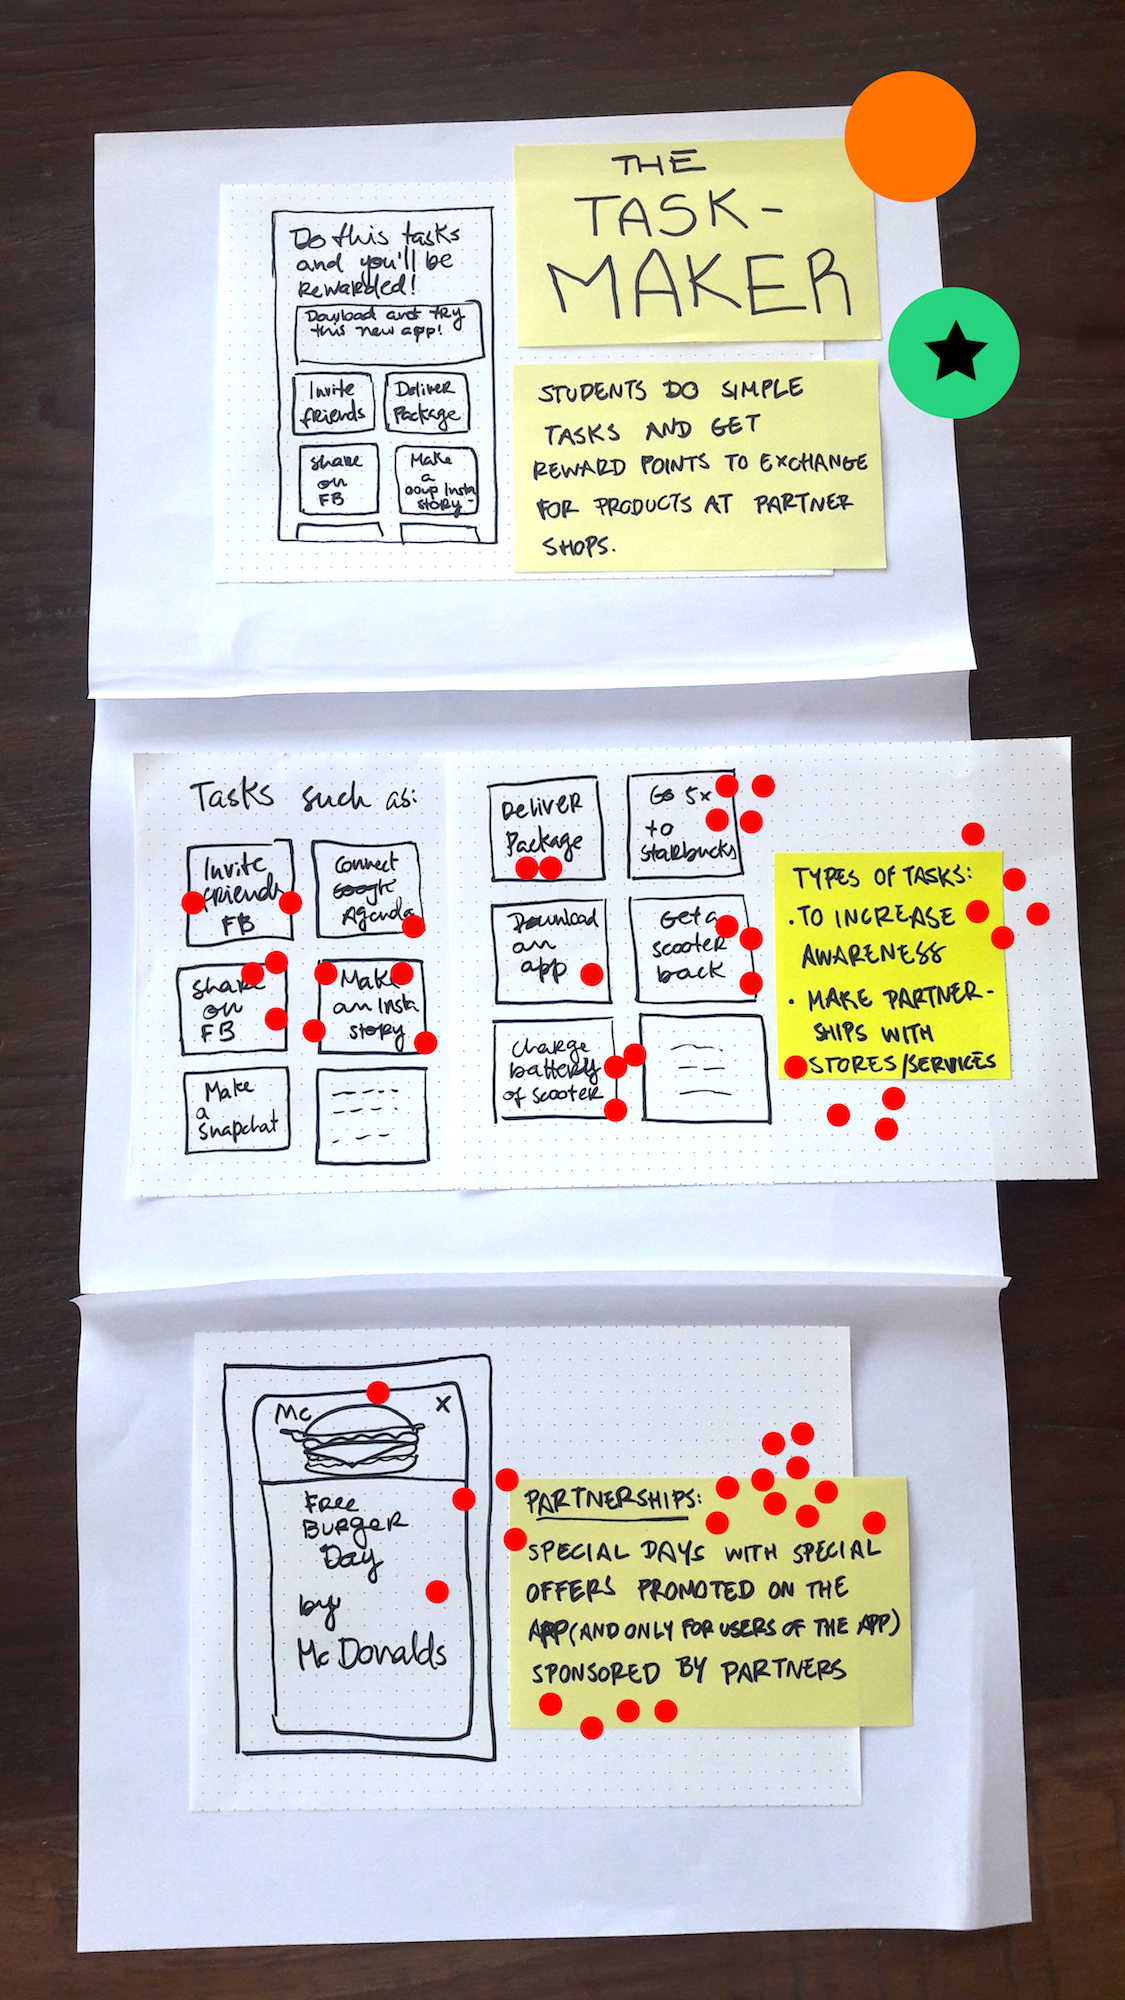 THE
TASK-
MAKER
Do this tasks
and you'll be
rewarded!
Download and try
this new app!
Invite
friends
Deliver
Package
Share
on
FB
Make
a
Insta
story
STUDENTS DO SIMPLE
TASKS AND GET
REWARD POINTS TO EXCHANGE
FOR PRODUCTS AT PARTNER
SHOPS.
Tasks such as:
Invite
friends
FB
Connect
Google
Agenda
Share
on
FB
Make
an Insta
story
Make
a
Snapchat
Deliver
Package
Go 5x
to
Starbucks
Download
an
app
Get a
scooter
back
Charge
battery
of scooter
TYPES OF TASKS:
· TO INCREASE
AWARENESS
· MAKE PARTNER-
SHIPS WITH
STORES/SERVICES
Mc
X
Free
Burger
Day
by
McDonalds
PARTNERSHIPS:
SPECIAL DAYS WITH SPECIAL
OFFERS PROMOTED ON THE
APP (AND ONLY FOR USERS OF THE APP)
SPONSORED BY PARTNERS